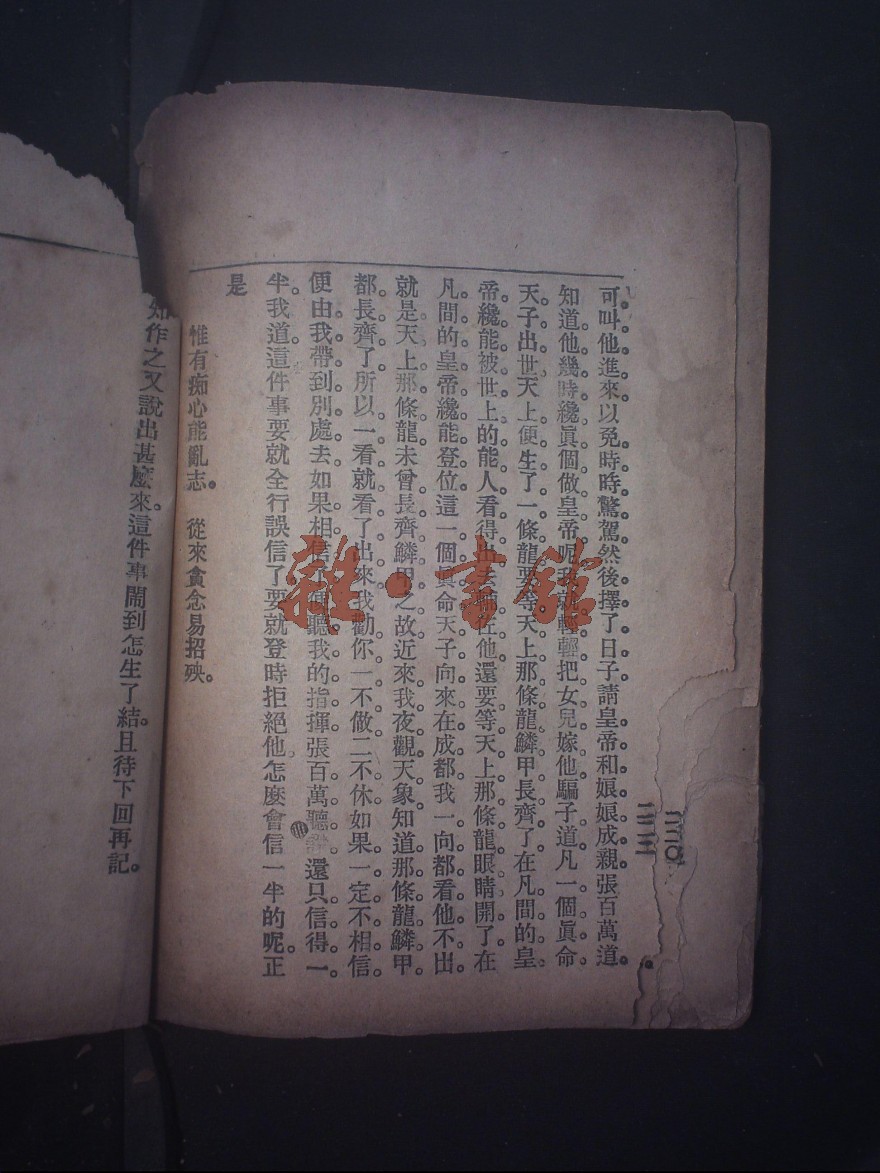 可叫他進來以免時時驚駕。然後擇了日子。請皇帝和娘娘成親。張百萬道。
知道他幾時纔眞個做皇帝呢。我就輕輕把女兒嫁他。騙子道。凡一個眞命
天子出世。天上便生了一條龍。要等天上那條龍鱗甲長齊了。在凡間的皇
帝。纔能被世上的能人看得出去在他。還要等天上那條龍眼睛開了。在
凡間的皇帝纔能登位。這一個眞命天子。向來在成都。我一向都看他不出。
就是天上那條龍未曾長齊鱗甲之故。近來我夜觀天象。知道那條龍鱗甲
都長齊了。所以一看就看了出來。我勸你一不做。二不休。如果一定不相信。
便由我帶到別處去。如果相信了。便聽我的指揮。張百萬聽 還只信得一
半。我道。這件事要就全行誤信了。要就登時拒絕他。怎麼會信一半的呢。正
是
惟有痴心能亂志。 從來貪念易招殃。
知作之又說出甚麼來。這件事鬧到怎生了結。且待下回再記。
二二〇
雜·書館